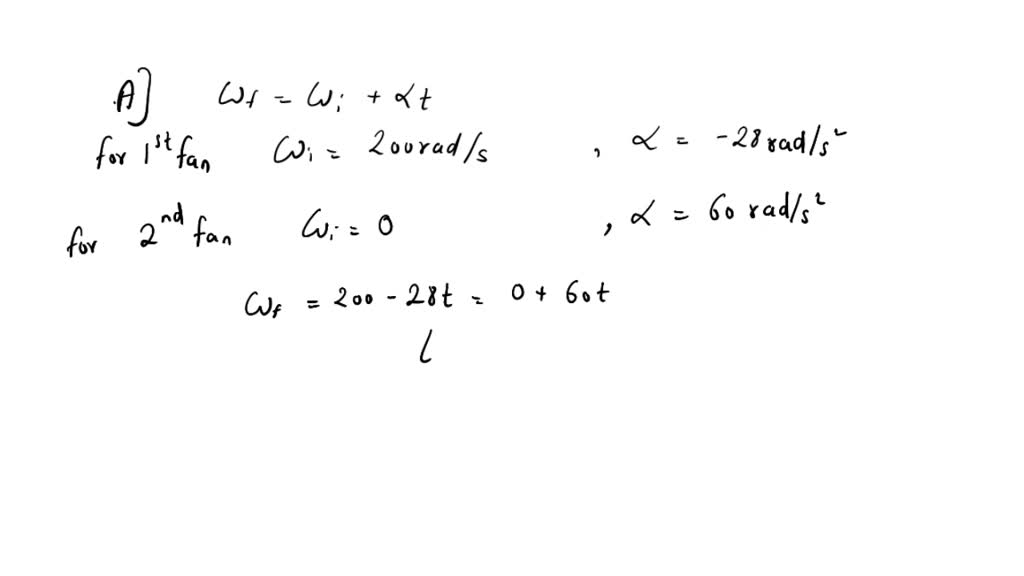 A] ωf = ωi + αt
for 1st fan ωi = 200 rad/s , α = -28 rad/s²
for 2nd fan ωi = 0 , α = 60 rad/s²
ωf = 200 - 28t = 0 + 60t